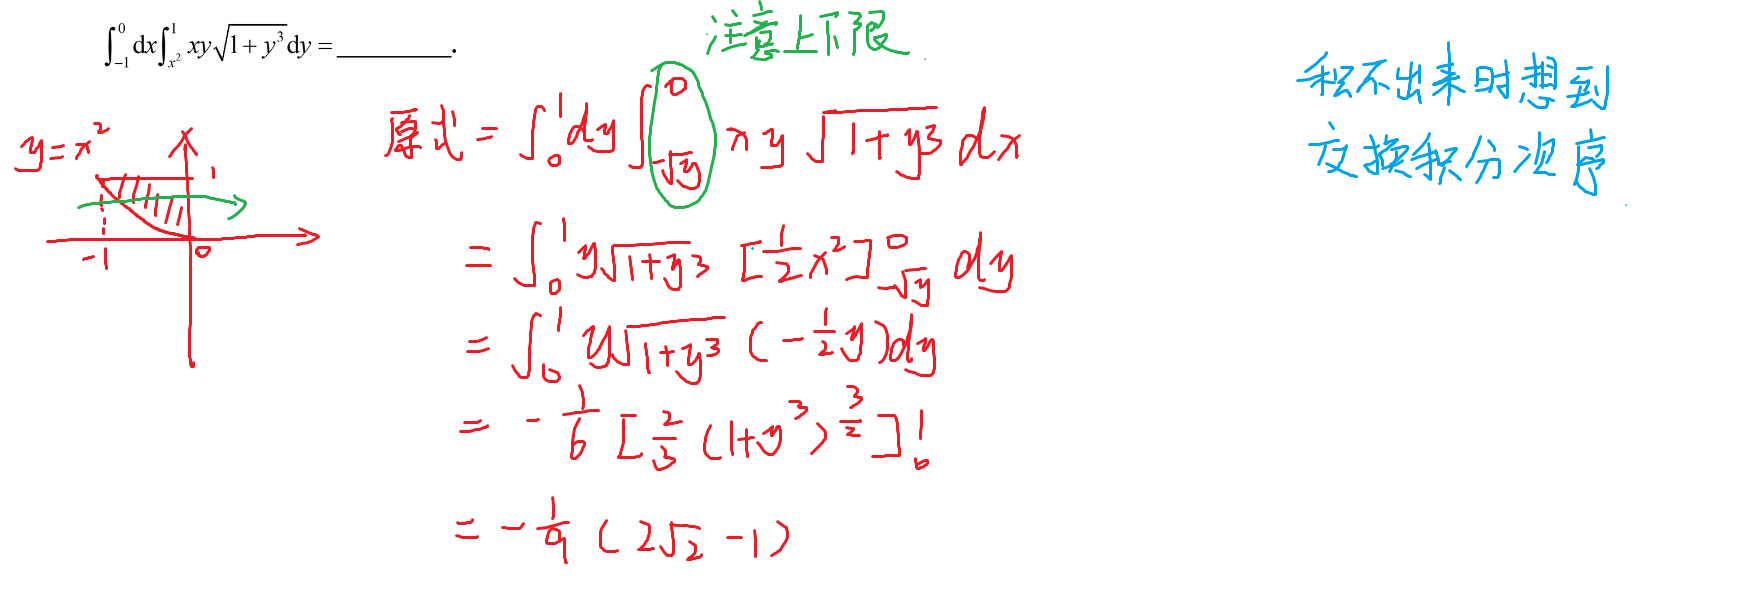 ∫_{-1}^{0} dx ∫_{x²}^{1} xy√(1+y³) dy = ________.
注意上下限
积不出来时想到
交换积分次序
y=x²
1
-1
0
原式 = ∫_0^1 dy ∫_{-√y}^0 xy√(1+y3) dx
= ∫_0^1 y√(1+y3) [1/2 x²]_{-√y}^0 dy
= ∫_0^1 y√(1+y³) (-1/2 y) dy
= -1/6 [2/3 (1+y³)^{3/2}]_0^1
= -1/9 (2√2 - 1)